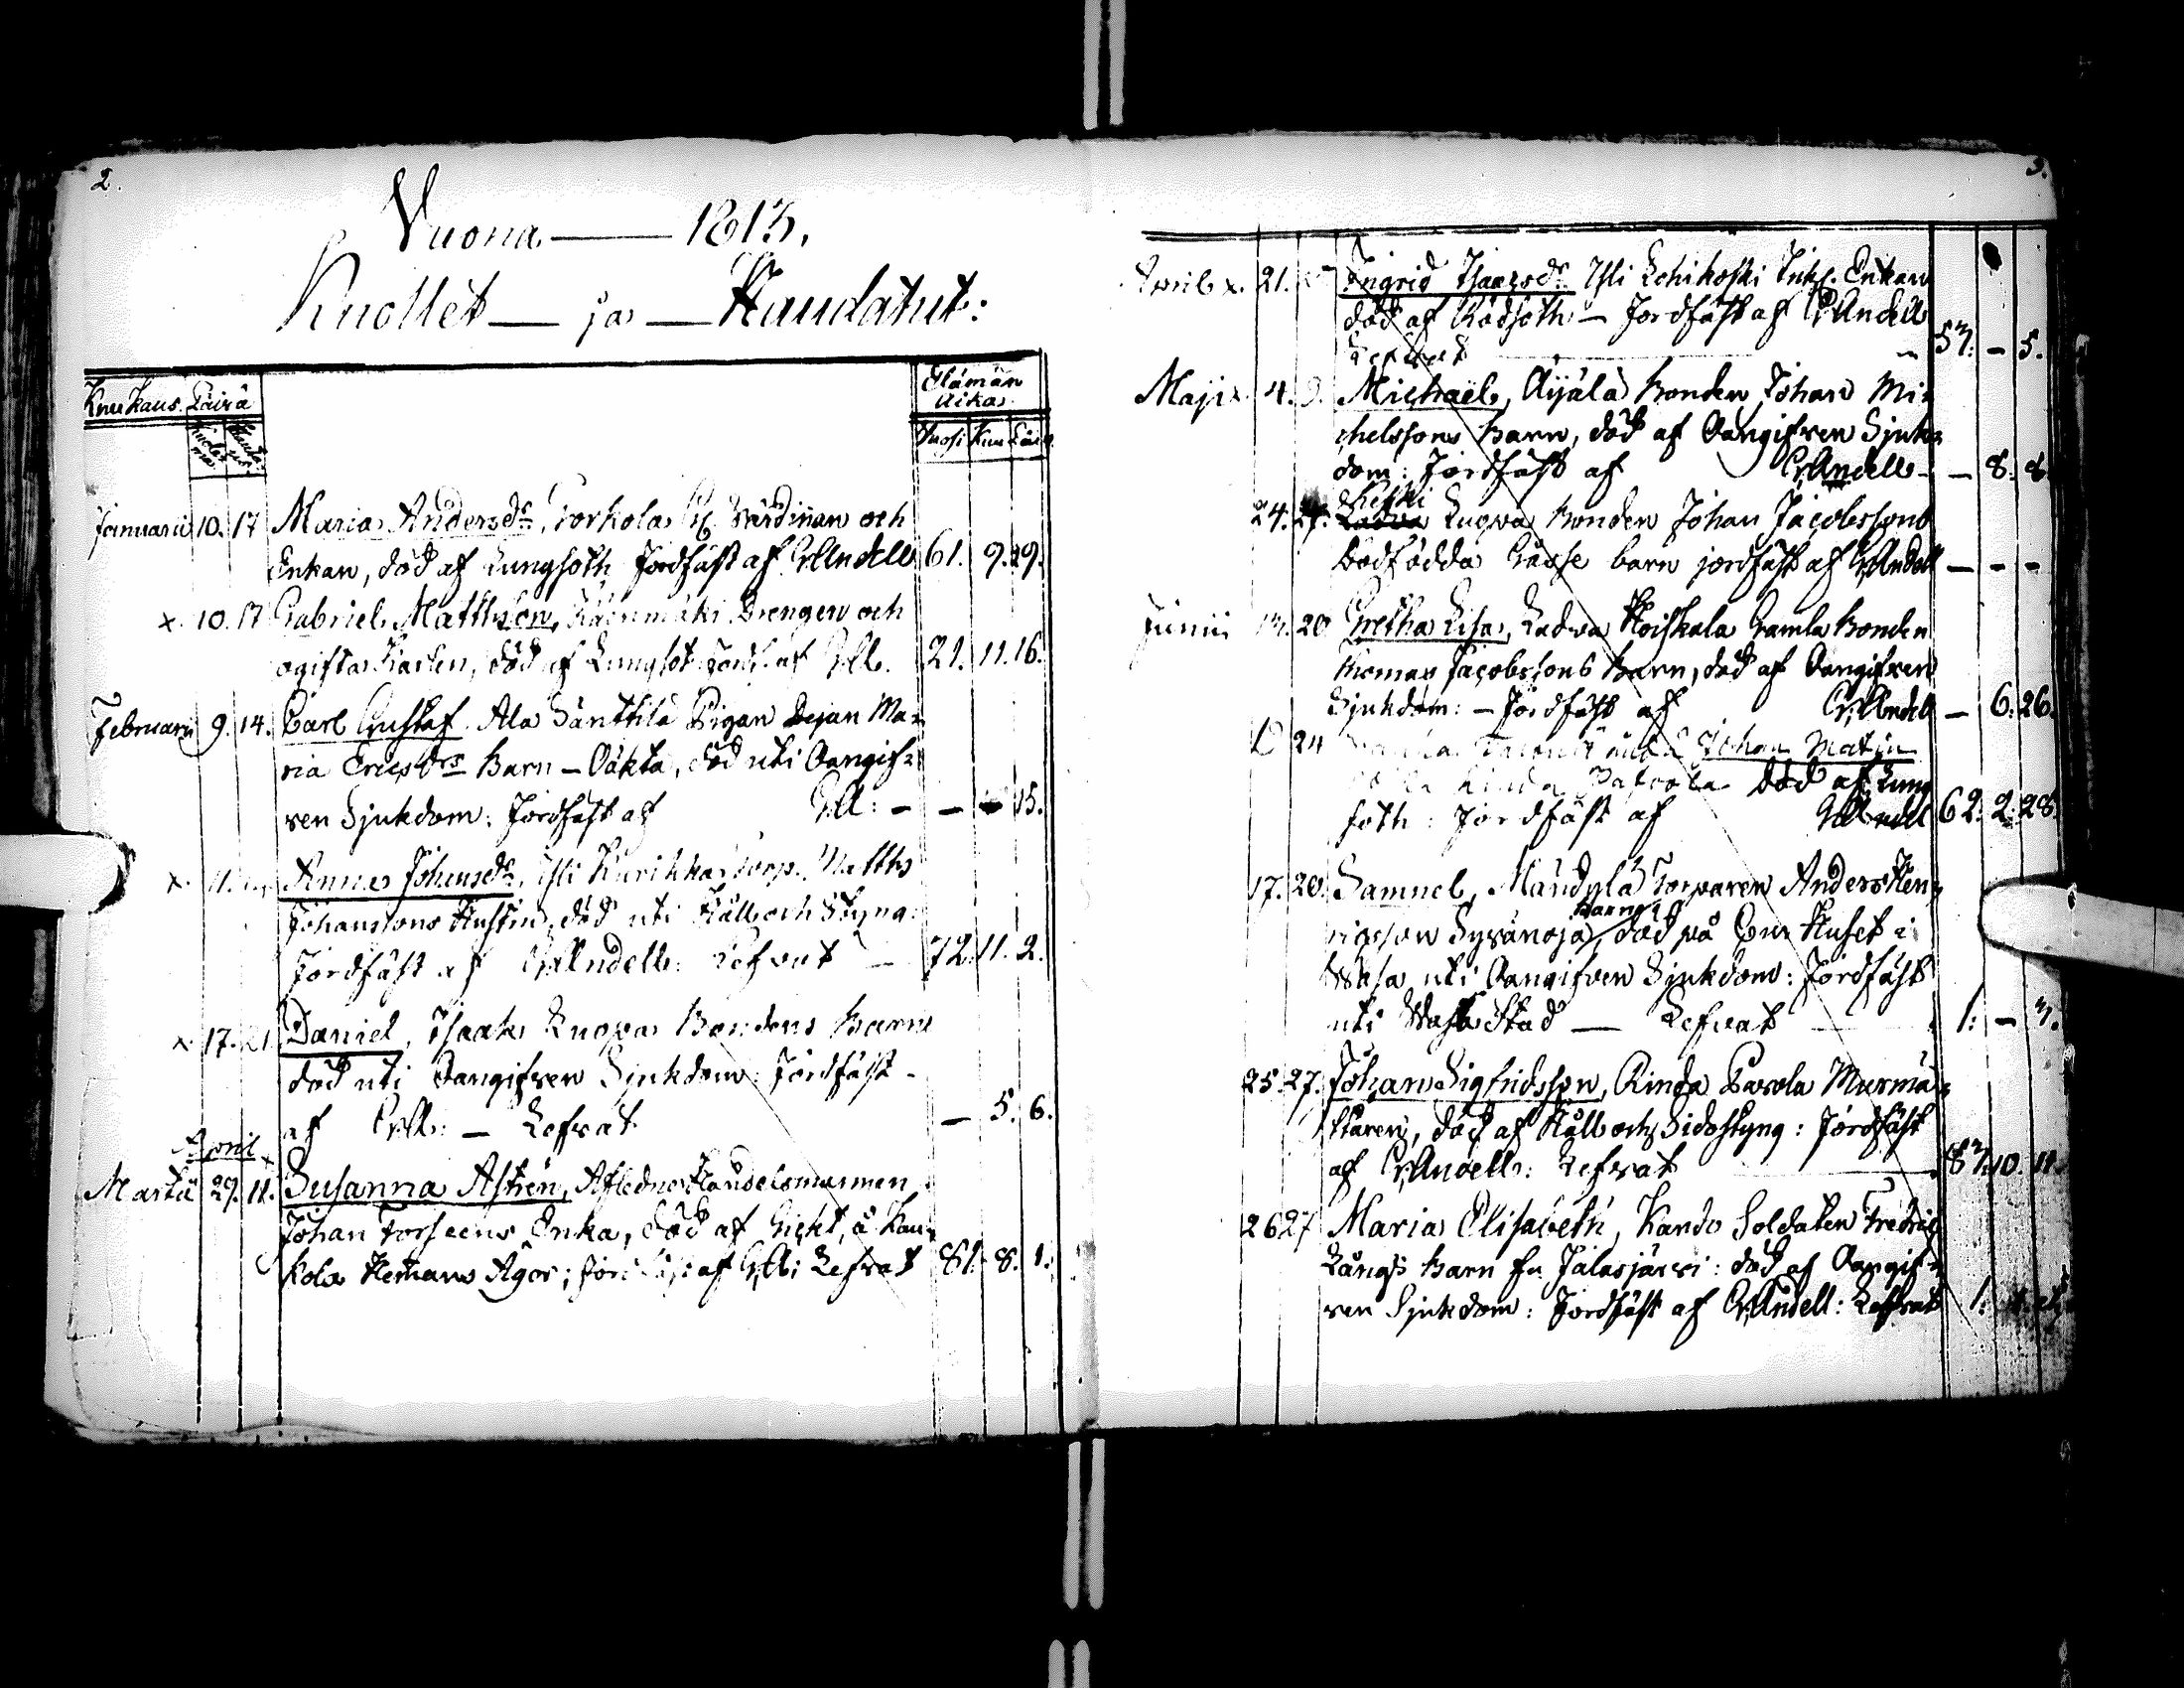 2.
Vuona — 1813.
Kuollet — ja — Haudatut:
Kuukaus. Päivä
Elämän Aika
Kuolema. Hauda
Vuosi Kuu Päiv
Januarii 10. 17 Maria Andersdr, Torkola Värdinnan och
Enkan, död af Lungsoth Jordfäst af GAndell 61. 9. 29.
x. 10. 17 Gabriel Mattsson, Drengen och
ogifta Karlen, död af Lungsot Jordf. af GA. 21. 11. 16.
Februarii 9. 14. Carl Gustaf. Ala Säntti Pigan Ma-
ria Ericsdrs Barn — Oäkta, död uti Oangif-
ven Sjukdom: Jordfäst af GA: — — 15.
x. 11. Anna Johansdr, Yli Kurikka Torp. Matths
Johanssons Hustru, död uti Håll och Styng:
Jordfäst af GAndell: Lefvat — 72. 11. 2.
x. 17. 21. Daniel, Isaak Luopa Bondens Barn
död uti Oangifven Sjukdom: Jordfäst
af GA: — Lefvat — 5. 6.
April x
Martii 29. 11. Susanna Astrén, Afledne Handelsmannen
Johan Forseens Enka, död af Gicht, å Kau-
kola Hemans Ägor; Jordfäst af GA: Lefvat 81. 8. 1.
3.
April x. 21. Ingrid Isaacsdr Yli Lohikoski Inh. Enkan
död af Rödsoth — Jordfäst af GAndell
Lefvat 57. — 5.
Maji x. 4. 9. Michael, Äijälä Bonden Johan Mi-
chelssons Barn, död af Oangifven Sjuk-
dom: Jordfäst af GAndell — — 8. 8.
Keski
24. 27. Luopa Bonden Johan Jacobssons
Dödfödda Gosse barn jordfäst af GAndell — — —
Junii 13. 20 Gretha Lisa, Ladva Koiskala Gamla Bonden
Thomas Jacobssons Barn, död af Oangifven
Sjukdom: — Jordfäst af GAndell — 6. 26.
24 Johan Matin
död af Lung
soth: Jordfäst af GAndell 62. 2. 28.
17. 20. Samuel, Mändylä Torparen Anders Hen-
Barn
ricsson Syränoja, död på Cur Huset i
Wasa uti Oangifven Sjukdom: Jordfäst
uti Wasa Stad — Lefvat — 1. — 3.
25. 27. Johan Sigfridsson, Rinda Parola Murmä-
staren, död af Håll och Sidostyng: Jordfäst
af GAndell: Lefvat 83. 10. 11.
26 27 Maria Elisabeth, Kando Soldaten Fredric
Långs Barn fr Jalasjärvi: död af Oangif-
ven Sjukdom: Jordfäst af GAndell: Lefvat 1.